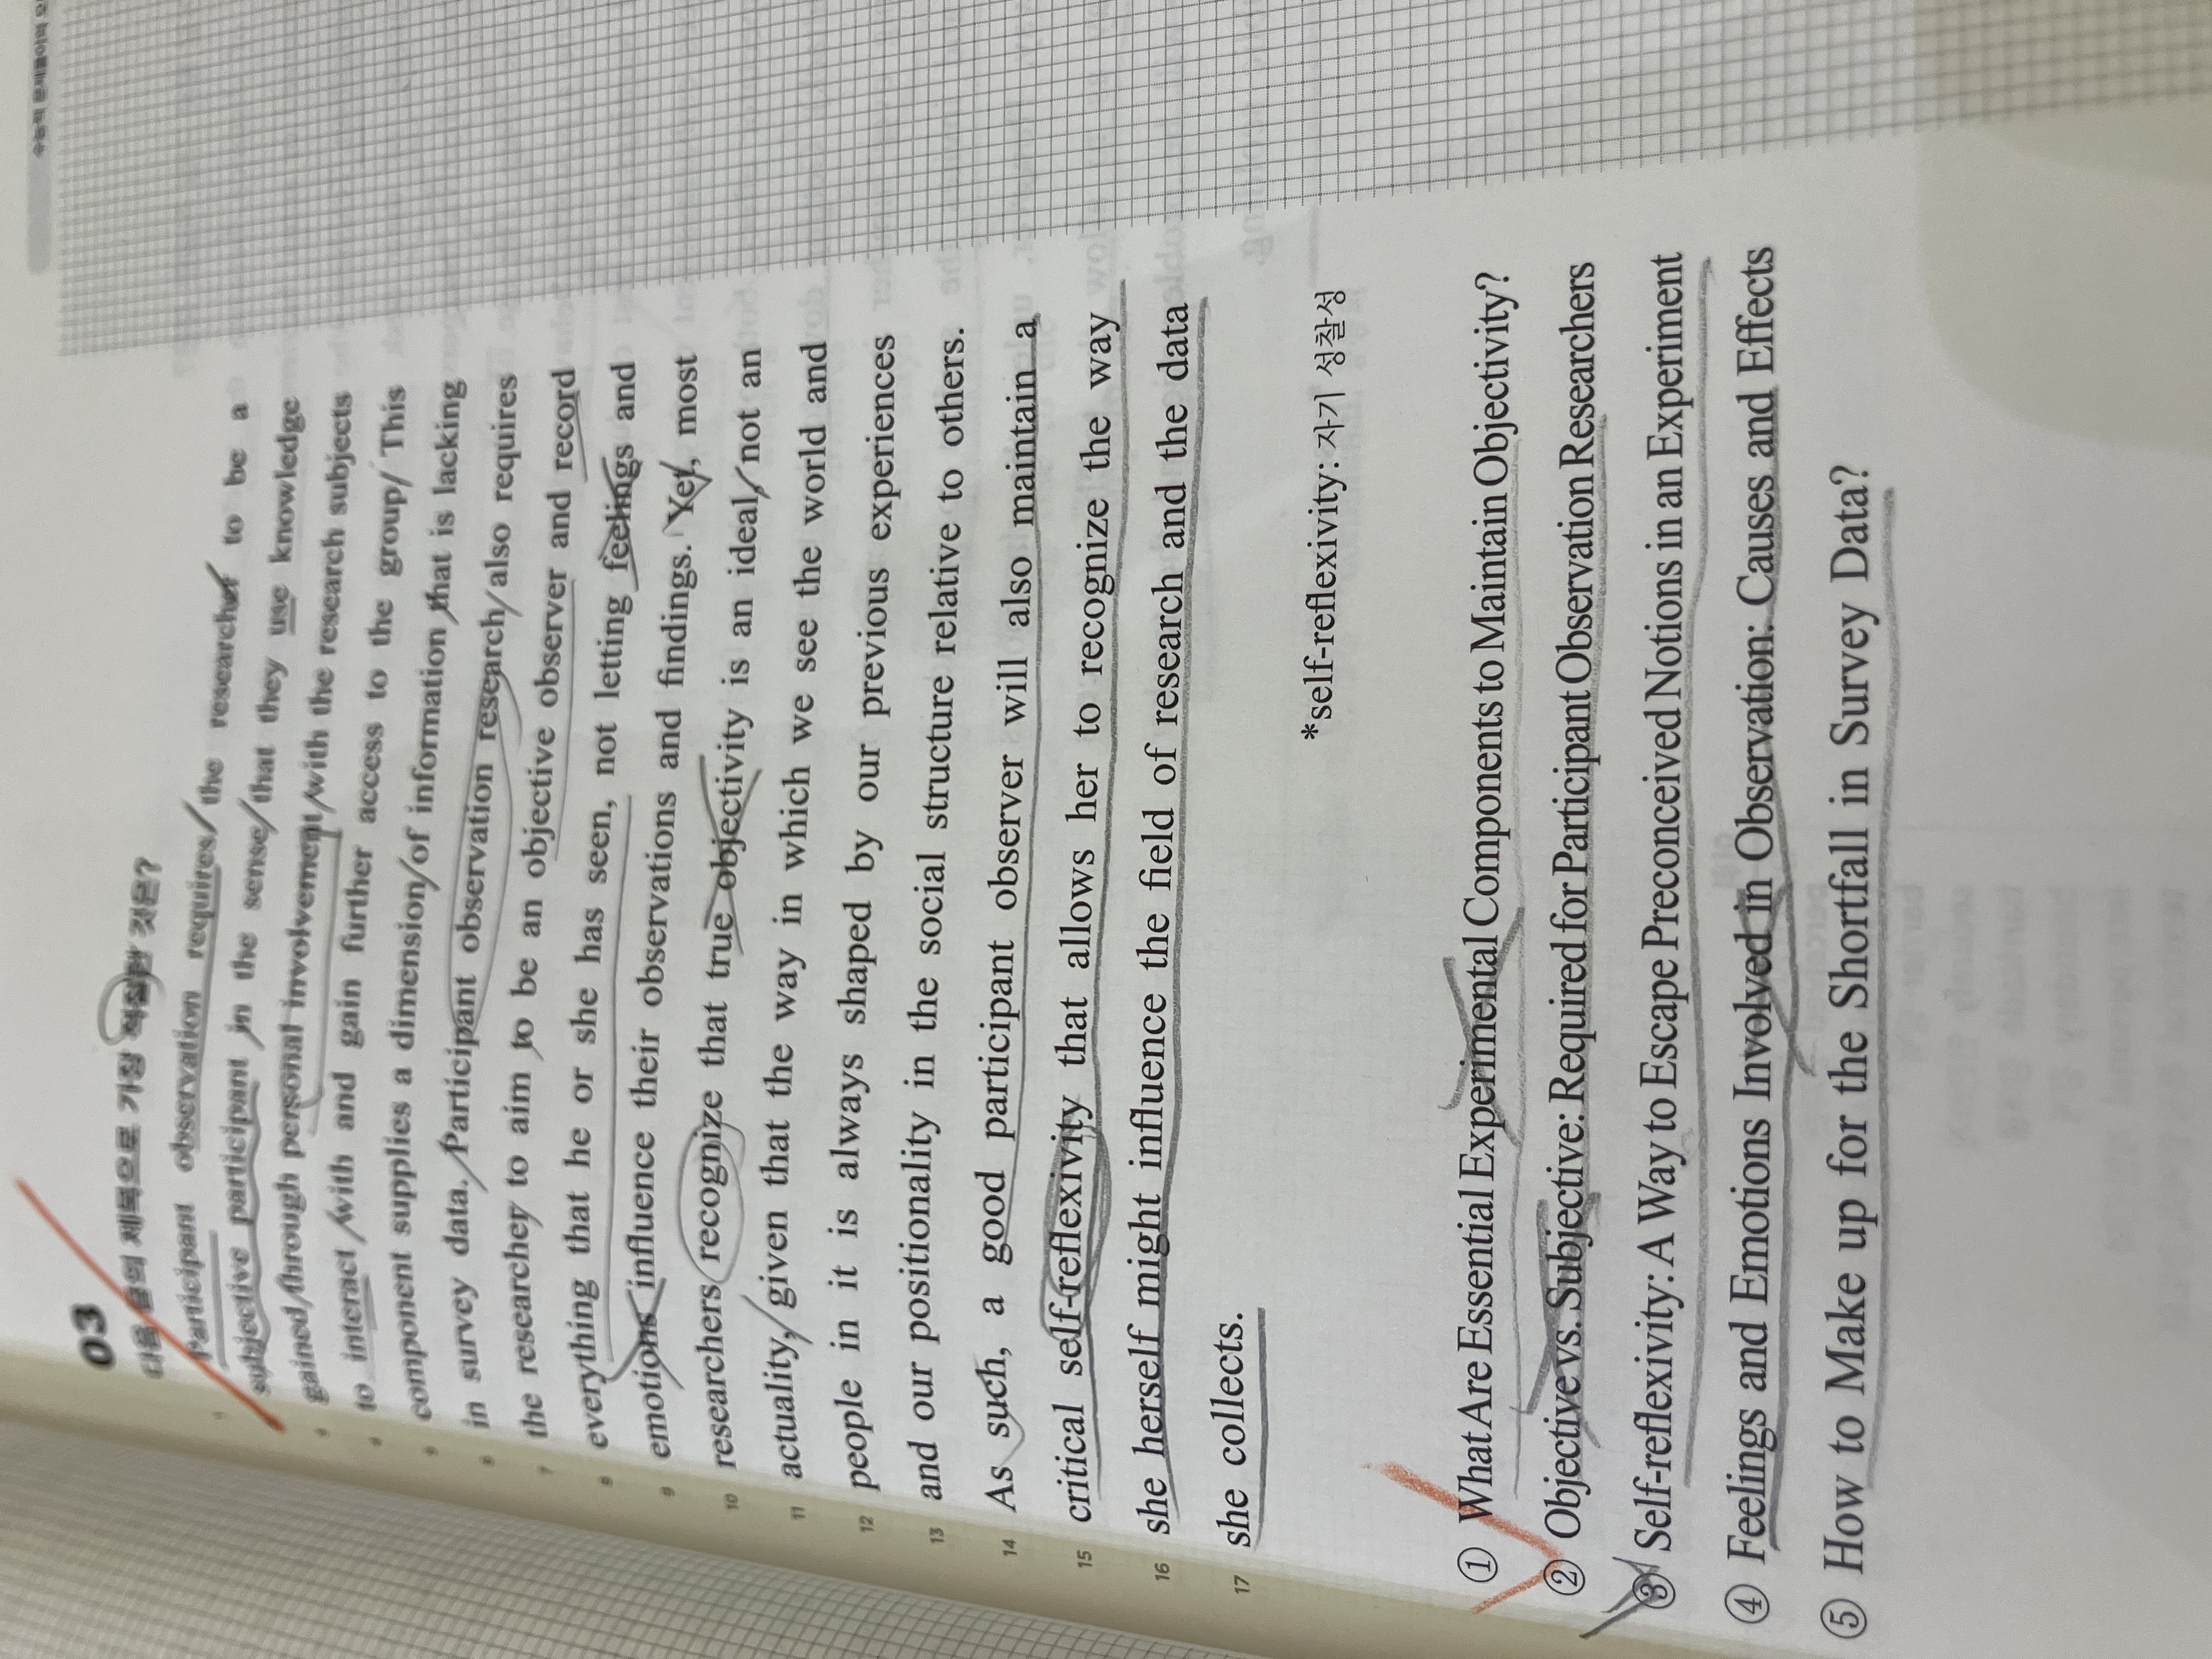 03
다음 글의 제목으로 가장 적절한 것은?
Participant observation requires the researcher to be a
subjective participant in the sense that they use knowledge
gained through personal involvement with the research subjects
to interact with and gain further access to the group. This
component supplies a dimension of information that is lacking
in survey data. Participant observation research also requires
the researcher to aim to be an objective observer and record
everything that he or she has seen, not letting feelings and
emotions influence their observations and findings. Yet, most
researchers recognize that true objectivity is an ideal, not an
actuality, given that the way in which we see the world and
people in it is always shaped by our previous experiences
and our positionality in the social structure relative to others.
As such, a good participant observer will also maintain a
critical self-reflexivity that allows her to recognize the way
she herself might influence the field of research and the data
she collects.
5
6
7
8
9
10
11
12
13
14
15
16
17
*self-reflexivity: 자기 성찰성
① What Are Essential Experimental Components to Maintain Objectivity?
② Objective vs. Subjective: Required for Participant Observation Researchers
③ Self-reflexivity: A Way to Escape Preconceived Notions in an Experiment
④ Feelings and Emotions Involved in Observation: Causes and Effects
⑤ How to Make up for the Shortfall in Survey Data?